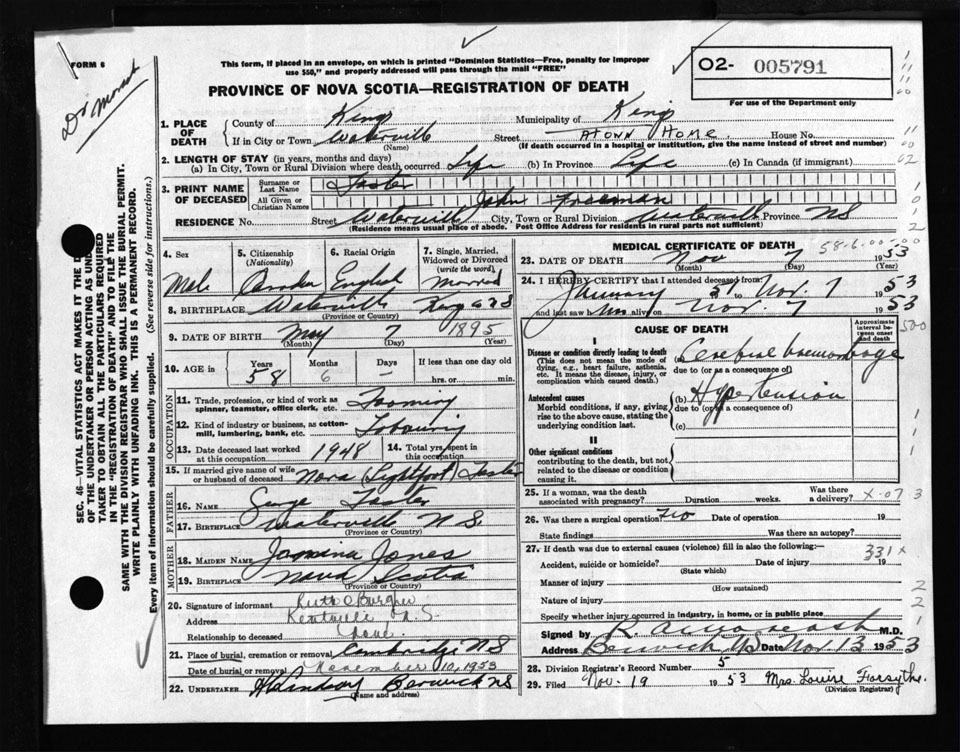 FORM 6
This form, if placed in an envelope, on which is printed "Dominion Statistics—Free, penalty for improper
use $50," and properly addressed will pass through the mail "FREE"
O2- 005791
For use of the Department only
PROVINCE OF NOVA SCOTIA—REGISTRATION OF DEATH
1. PLACE OF DEATH
County of Kings Municipality of Kings
If in City or Town Waterville Street At own Home. House No.
(Name) (If death occurred in a hospital or institution, give the name instead of street and number)
2. LENGTH OF STAY (in years, months and days)
(a) In City, Town or Rural Division where death occurred Life (b) In Province Life (c) In Canada (if immigrant)
3. PRINT NAME OF DECEASED
Surname or Last Name
All Given or Christian Names John Freeman
RESIDENCE No. Street Waterville City, Town or Rural Division Waterville Province NS
(Residence means usual place of abode. Post Office Address for residents in rural parts not sufficient)
4. Sex Male
5. Citizenship (Nationality)
6. Racial Origin English
7. Single, Married, Widowed or Divorced (write the word) Married
8. BIRTHPLACE Waterville
(Province or Country)
9. DATE OF BIRTH May 7 1895
(Month) (Day) (Year)
10. AGE in Years 58 Months 6 Days If less than one day old hrs. or min.
OCCUPATION
11. Trade, profession, or kind of work as spinner, teamster, office clerk, etc. Farming
12. Kind of industry or business, as cotton-mill, lumbering, bank, etc. Labouring
13. Date deceased last worked at this occupation 1948
14. Total yrs. spent in this occupation
15. If married give name of wife or husband of deceased Nora (Lightfoot)
FATHER
16. NAME
17. BIRTHPLACE Waterville N.S.
(Province or Country)
MOTHER
18. MAIDEN NAME Jones
19. BIRTHPLACE Nova Scotia
(Province or Country)
20. Signature of informant Ruth
Address Kentville N.S.
Relationship to deceased
21. Place of burial, cremation or removal Cambridge NS
Date of burial or removal November 10, 1953
22. UNDERTAKER Berwick NS
(Name and address)
MEDICAL CERTIFICATE OF DEATH
23. DATE OF DEATH Nov 7 1953
(Month) (Day) (Year)
24. I HEREBY CERTIFY that I attended deceased from
January 51 to Nov. 7 1953
and last saw him alive on Nov. 7 1953
CAUSE OF DEATH
Approximate interval between onset and death
I
Disease or condition directly leading to death
(This does not mean the mode of dying, e.g., heart failure, asthenia, etc. It means the disease, injury, or complication which caused death.)
(a) Cerebral haemorrhage
due to (or as a consequence of)
Antecedent causes
Morbid conditions, if any, giving rise to the above cause, stating the underlying condition last.
(b) Hypertension
due to (or as a consequence of)
(c)
II
Other significant conditions
contributing to the death, but not related to the disease or condition causing it.
25. If a woman, was the death associated with pregnancy? Duration weeks. Was there a delivery?
26. Was there a surgical operation? no Date of operation 19
State findings Was there an autopsy?
27. If death was due to external causes (violence) fill in also the following:—
331 x
Accident, suicide or homicide? Date of injury 19
(State which)
Manner of injury
(How sustained)
Nature of injury
Specify whether injury occurred in industry, in home, or in public place
Signed by M.D.
Address Berwick NS Date Nov 13 1953
28. Division Registrar's Record Number 5
29. Filed Nov. 19 1953 Mrs. Louise Forsythe.
(Division Registrar)
SEC. 46—VITAL STATISTICS ACT MAKES IT THE D
OF THE UNDERTAKER OR PERSON ACTING AS UND
TAKER TO OBTAIN ALL THE PARTICULARS REQUIRED
IN THE "REGISTRATION OF DEATH" AND TO FILE THE
SAME WITH THE DIVISION REGISTRAR WHO SHALL ISSUE THE BURIAL PERMIT.
WRITE PLAINLY WITH UNFADING INK. THIS IS A PERMANENT RECORD.
Every item of information should be carefully supplied. (See reverse side for instructions.)